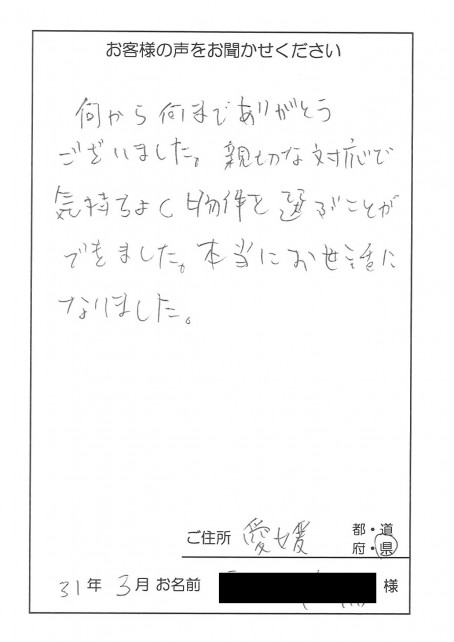 お客様の声をお聞かせください
何から何までありがとう
ございました。親切な対応で
気持ちよく物件を選ぶことが
できました。本当にお世話に
なりました。
ご住所 愛媛 都・道
府・県
31年 3月 お名前 様